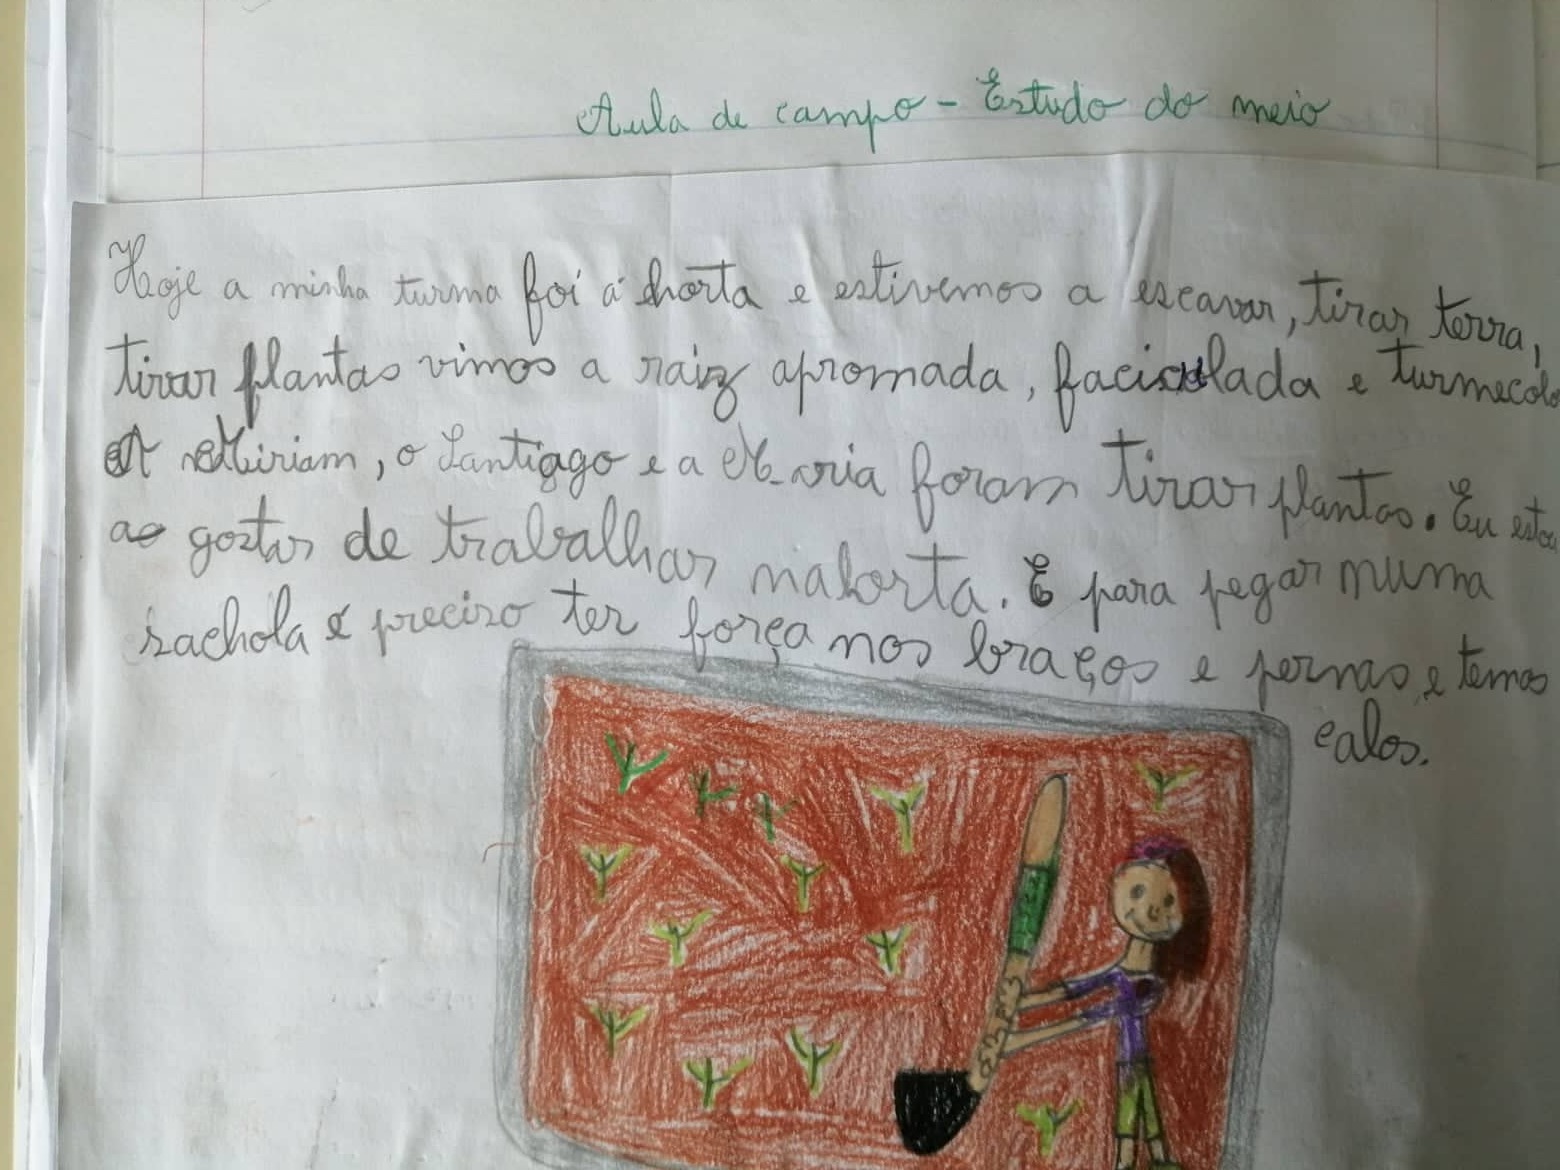 Aula de campo - Estudo do meio
Hoje a minha turma foi á horta e estivemos a escavar, tirar terra,
tirar plantas vimos a raiz apromada, faciculada e turmecolo
A Miriam, o Santiago e a Maria foram tirar plantas. Eu estou
a gostar de trabalhar nahorta. E para pegar numa
sachola é preciso ter força nos braços e pernas e temos
calos.